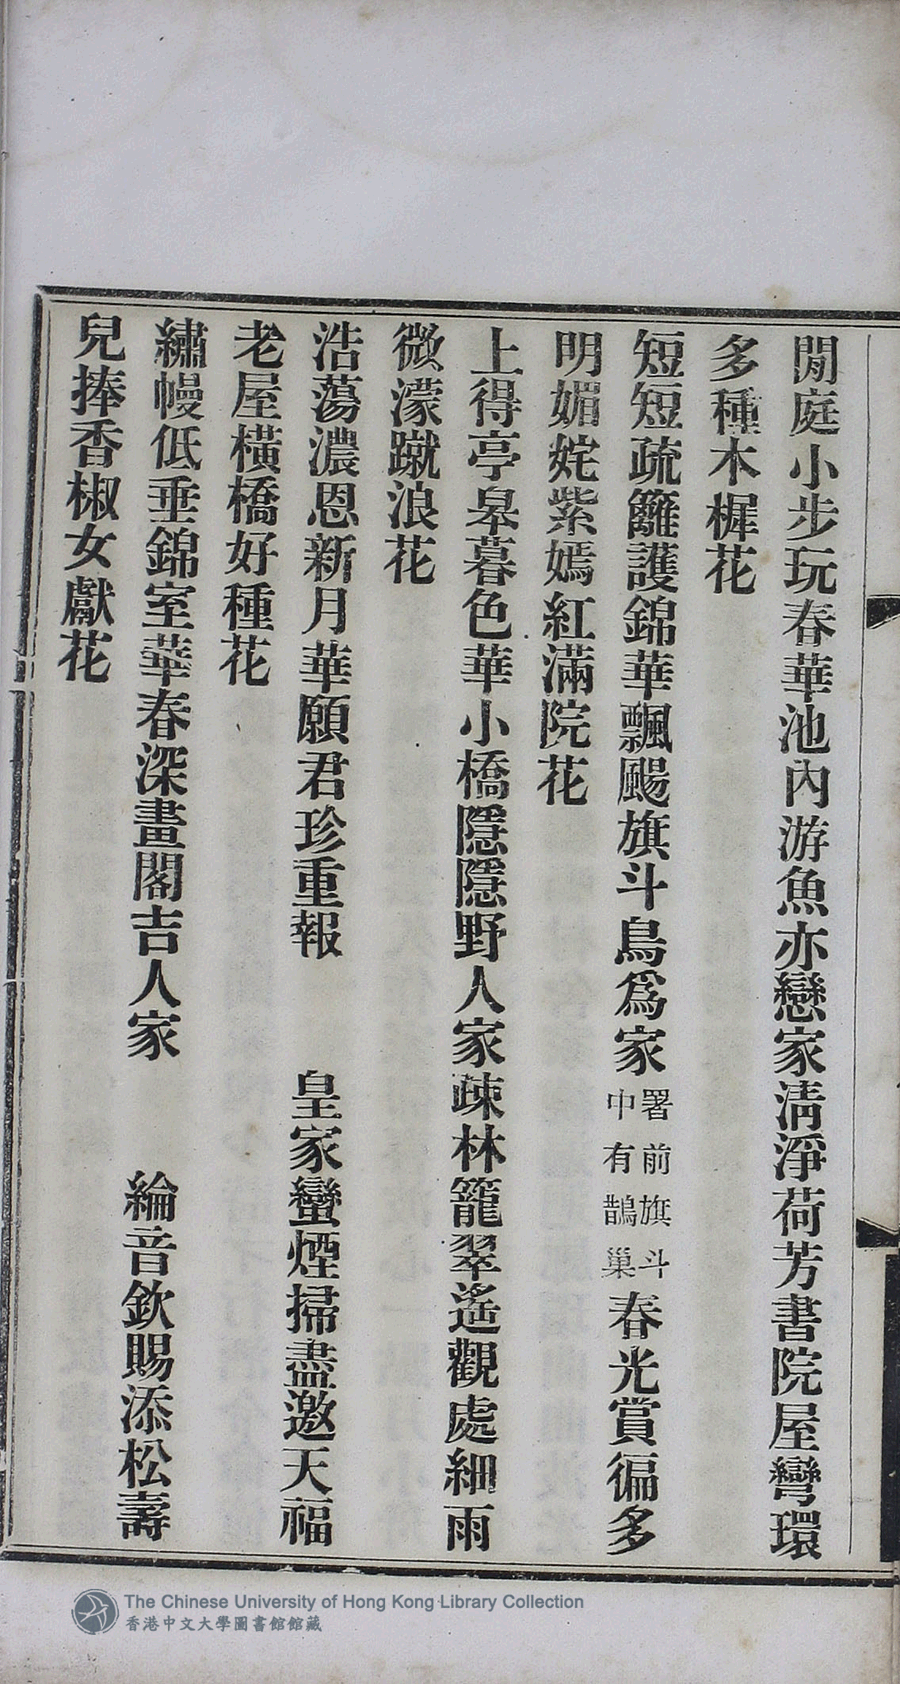 閒庭小步玩春華池內游魚亦戀家淸淨荷芳書院屋彎環
多種木樨花
短短疏籬護錦華飄颺旗斗鳥爲家署前旗斗中有鵲巢春光賞徧多
明媚姹紫嫣紅滿院花
上得亭皋暮色華小橋隱隱野人家疎林籠翠遙觀處細雨
微濛蹴浪花
浩蕩濃恩新月華願君珍重報 皇家蠻煙掃盡邀天福
老屋橫橋好種花
繡幔低垂錦室華春深畫閣吉人家 綸音欽賜添松壽
兒捧香椒女獻花
The Chinese University of Hong Kong Library Collection
香港中文大學圖書館館藏